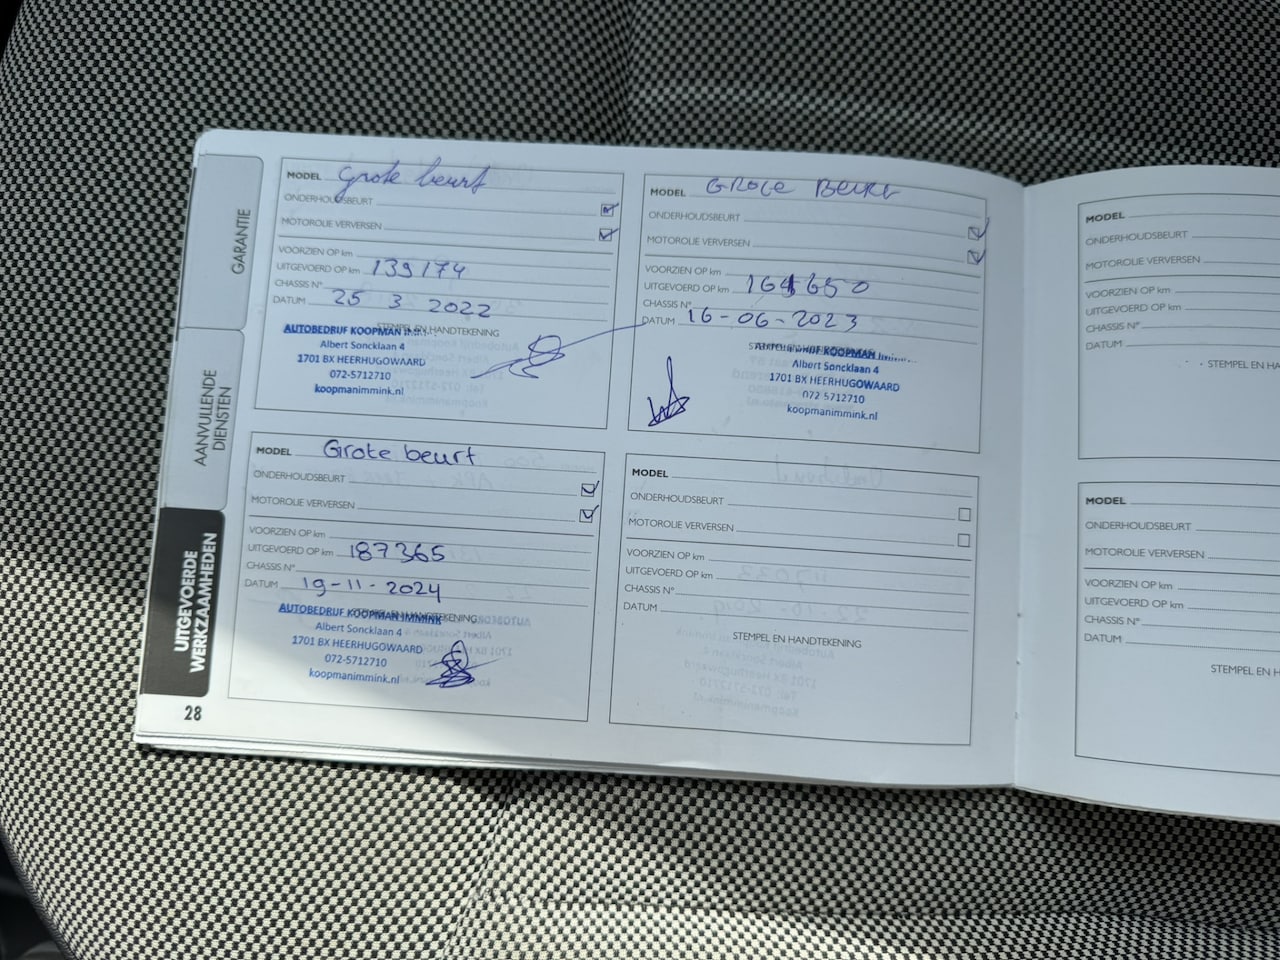 GARANTIE
AANVULLENDE
DIENSTEN
UITGEVOERDE
WERKZAAMHEDEN
28
MODEL Grote beurt
ONDERHOUDSBEURT
MOTOROLIE VERVERSEN
VOORZIEN OP km
UITGEVOERD OP km 139174
CHASSIS N°
DATUM 25 3 2022
STEMPEL EN HANDTEKENING
AUTOBEDRIJF KOOPMAN
Albert Soncklaan 4
1701 BX HEERHUGOWAARD
072-5712710
koopmanimmink.nl
MODEL Grote Beurt
ONDERHOUDSBEURT
MOTOROLIE VERVERSEN
VOORZIEN OP km
UITGEVOERD OP km 164650
CHASSIS N°
DATUM 16-06-2023
KOOPMAN
Albert Soncklaan 4
1701 BX HEERHUGOWAARD
072 5712710
koopmanimmink.nl
MODEL Grote beurt
ONDERHOUDSBEURT
MOTOROLIE VERVERSEN
VOORZIEN OP km
UITGEVOERD OP km 187365
CHASSIS N°
DATUM 19-11-2024
STEMPEL EN HANDTEKENING
AUTOBEDRIJF KOOPMAN IMMINK
Albert Soncklaan 4
1701 BX HEERHUGOWAARD
072-5712710
koopmanimmink.nl
MODEL
ONDERHOUDSBEURT
MOTOROLIE VERVERSEN
VOORZIEN OP km
UITGEVOERD OP km
CHASSIS N°
DATUM
STEMPEL EN HANDTEKENING
MODEL
ONDERHOUDSBEURT
MOTOROLIE VERVERSEN
VOORZIEN OP km
UITGEVOERD OP km
CHASSIS N°
DATUM
STEMPEL EN HA
MODEL
ONDERHOUDSBEURT
MOTOROLIE VERVERSEN
VOORZIEN OP km
UITGEVOERD OP km
CHASSIS N°
DATUM
STEMPEL EN H